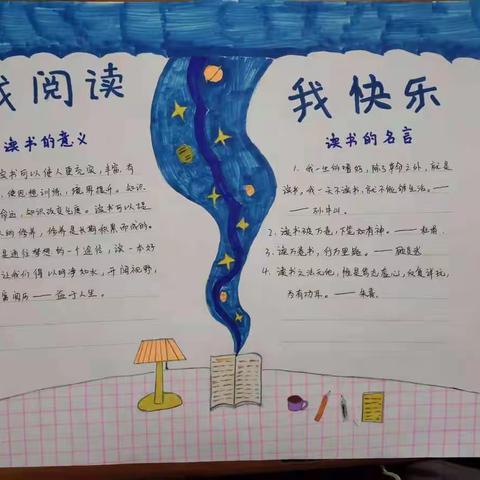 我阅读
我快乐
读书的意义
读书可以使人更充实,丰富,有
,使思想训练,境界提升。知识
命运,知识改变气度。读书可以提
人的修养,修养是长期积累而成的。
是通往梦想的一个途径,读一本好
让我们得以明净如水,开阔视野,
富阅历——益于人生。
读书的名言
1. 我一生的嗜好,除了革命之外,就是
读书。我一天不读书,就不能够生活。——
孙中山
2. 读书破万卷,下笔如有神。——杜甫
3. 读万卷书,行万里路。——顾炎武
4. 读书之法无他,惟是笃志虚心,反复详玩,
为有功耳。——朱熹